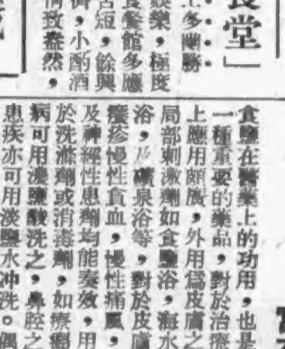 食堂」
上多蘭勝
娛樂，極度
食餐館多應
苦短，餘興
御，小酌酒
情致盎然，
食鹽在醫藥上的功用，也是
一種重要的藥品，對於治療
上應用頗廣，外用爲皮膚之
局部刺激劑如食鹽浴，海水
浴，及礦泉浴等，對於皮膚
癢疹慢性貧血，慢性痛風，
及神經性患劑均能奏效，用
於洗滌劑或消毒劑，如療瘤
病可用濃鹽酸洗之，鼻腔之
患疾亦可用淡鹽水冲洗。偶